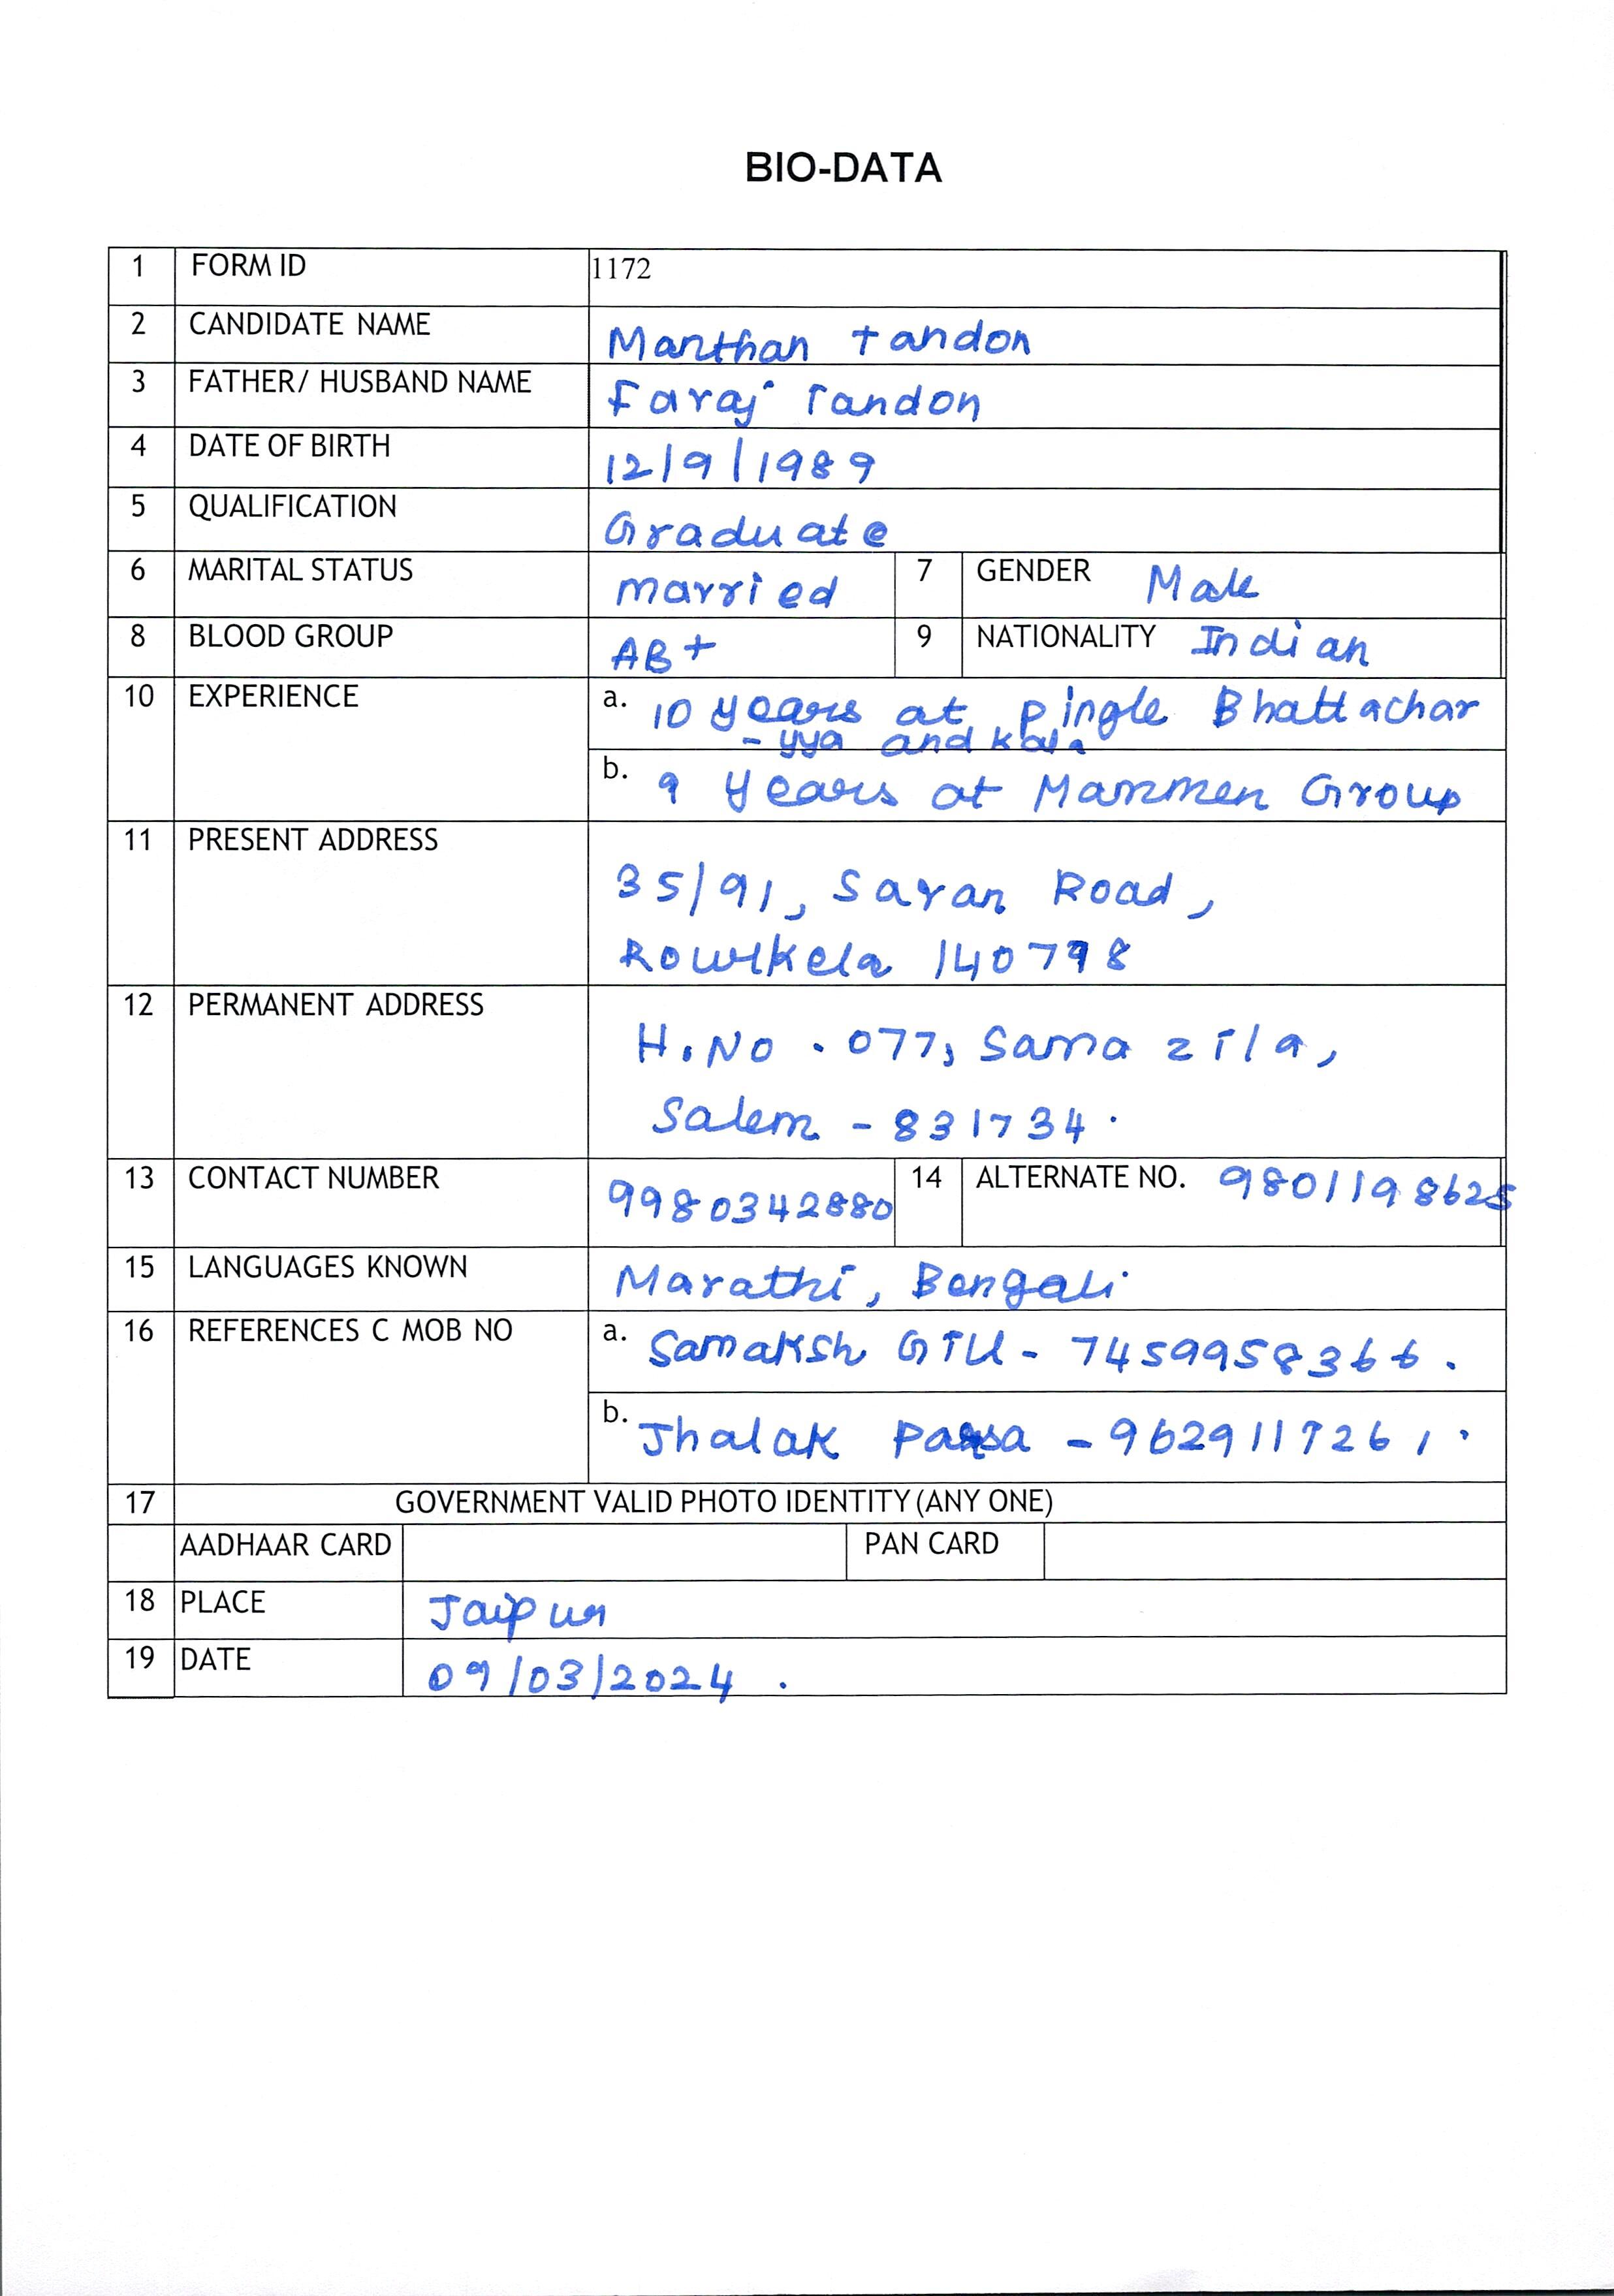 BIO-DATA
1 FORM ID 1172
2 CANDIDATE NAME Manthan Tandon
3 FATHER/ HUSBAND NAME Faraj Tandon
4 DATE OF BIRTH 12/9/1989
5 QUALIFICATION Graduate
6 MARITAL STATUS married 7 GENDER Male
8 BLOOD GROUP AB+ 9 NATIONALITY Indian
10 EXPERIENCE a. 10 years at Pingle Bhattachar
-yya and Kala
b. 9 years at Mammen Group
11 PRESENT ADDRESS
35/91, Saran Road,
Rourkela 140798
12 PERMANENT ADDRESS
H.No. 077, Sama zila,
Salem - 831734.
13 CONTACT NUMBER 9980342880 14 ALTERNATE NO. 9801198625
15 LANGUAGES KNOWN Marathi, Bengali
16 REFERENCES C MOB NO a. Samaksh Gill - 7459958366.
b. Jhalak - 9629117261.
17 GOVERNMENT VALID PHOTO IDENTITY (ANY ONE)
AADHAAR CARD PAN CARD
18 PLACE Jaipur
19 DATE 09/03/2024.